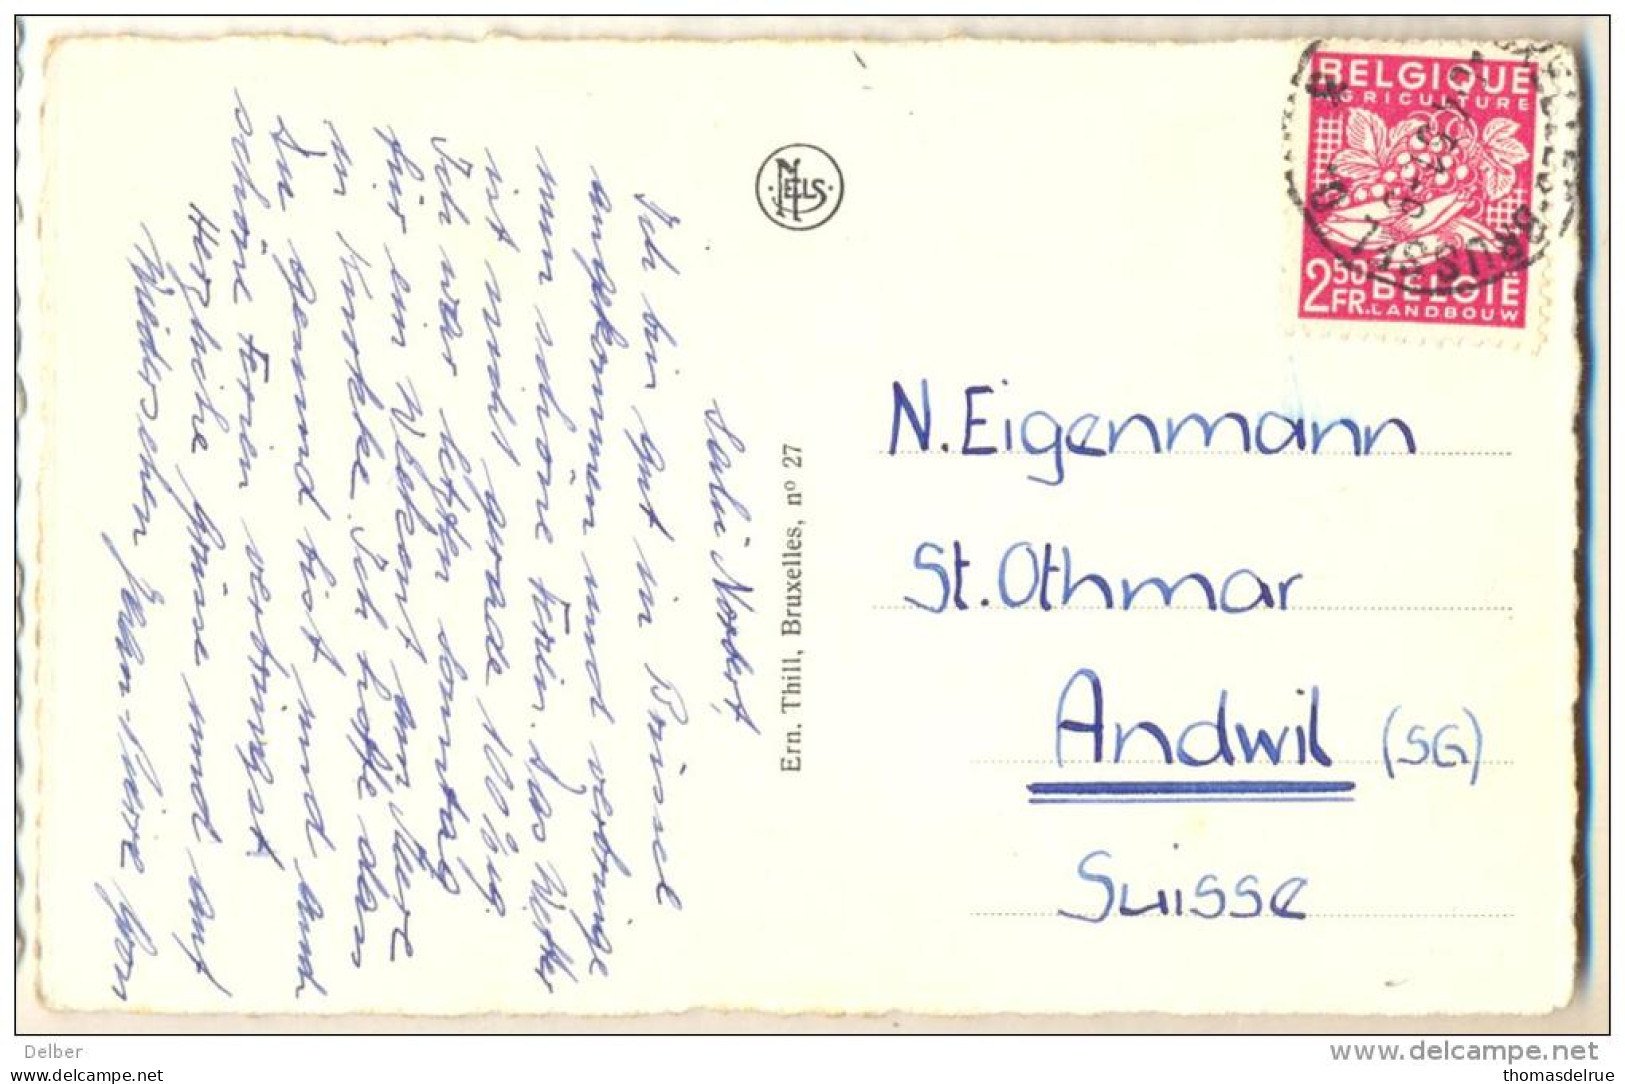 Salü Norbert,
Ich bin gut in Brüssel
angekommen und verbringe
nun schöne Ferien. Das Wetter
ist nicht gerade 100%ig.
Ich war letzten Sonntag
für ein Wekent am Meere
in Knokke. Ich hoffe dass
Du gesund bist und auch
schöne Ferien verbringst.
Herzliche Grüsse und auf
Wiedersehen Jean-Pierre
NELS
Ern. Thill, Bruxelles, nº 27
BELGIQUE
AGRICULTURE
2.50 FR.
BELGIE
LANDBOUW
BRUSSEL
N. Eigenmann
St. Othmar
Andwil (SG)
Suisse
Delber
www.delcampe.net
yourauction.be/com
thomasdelrue